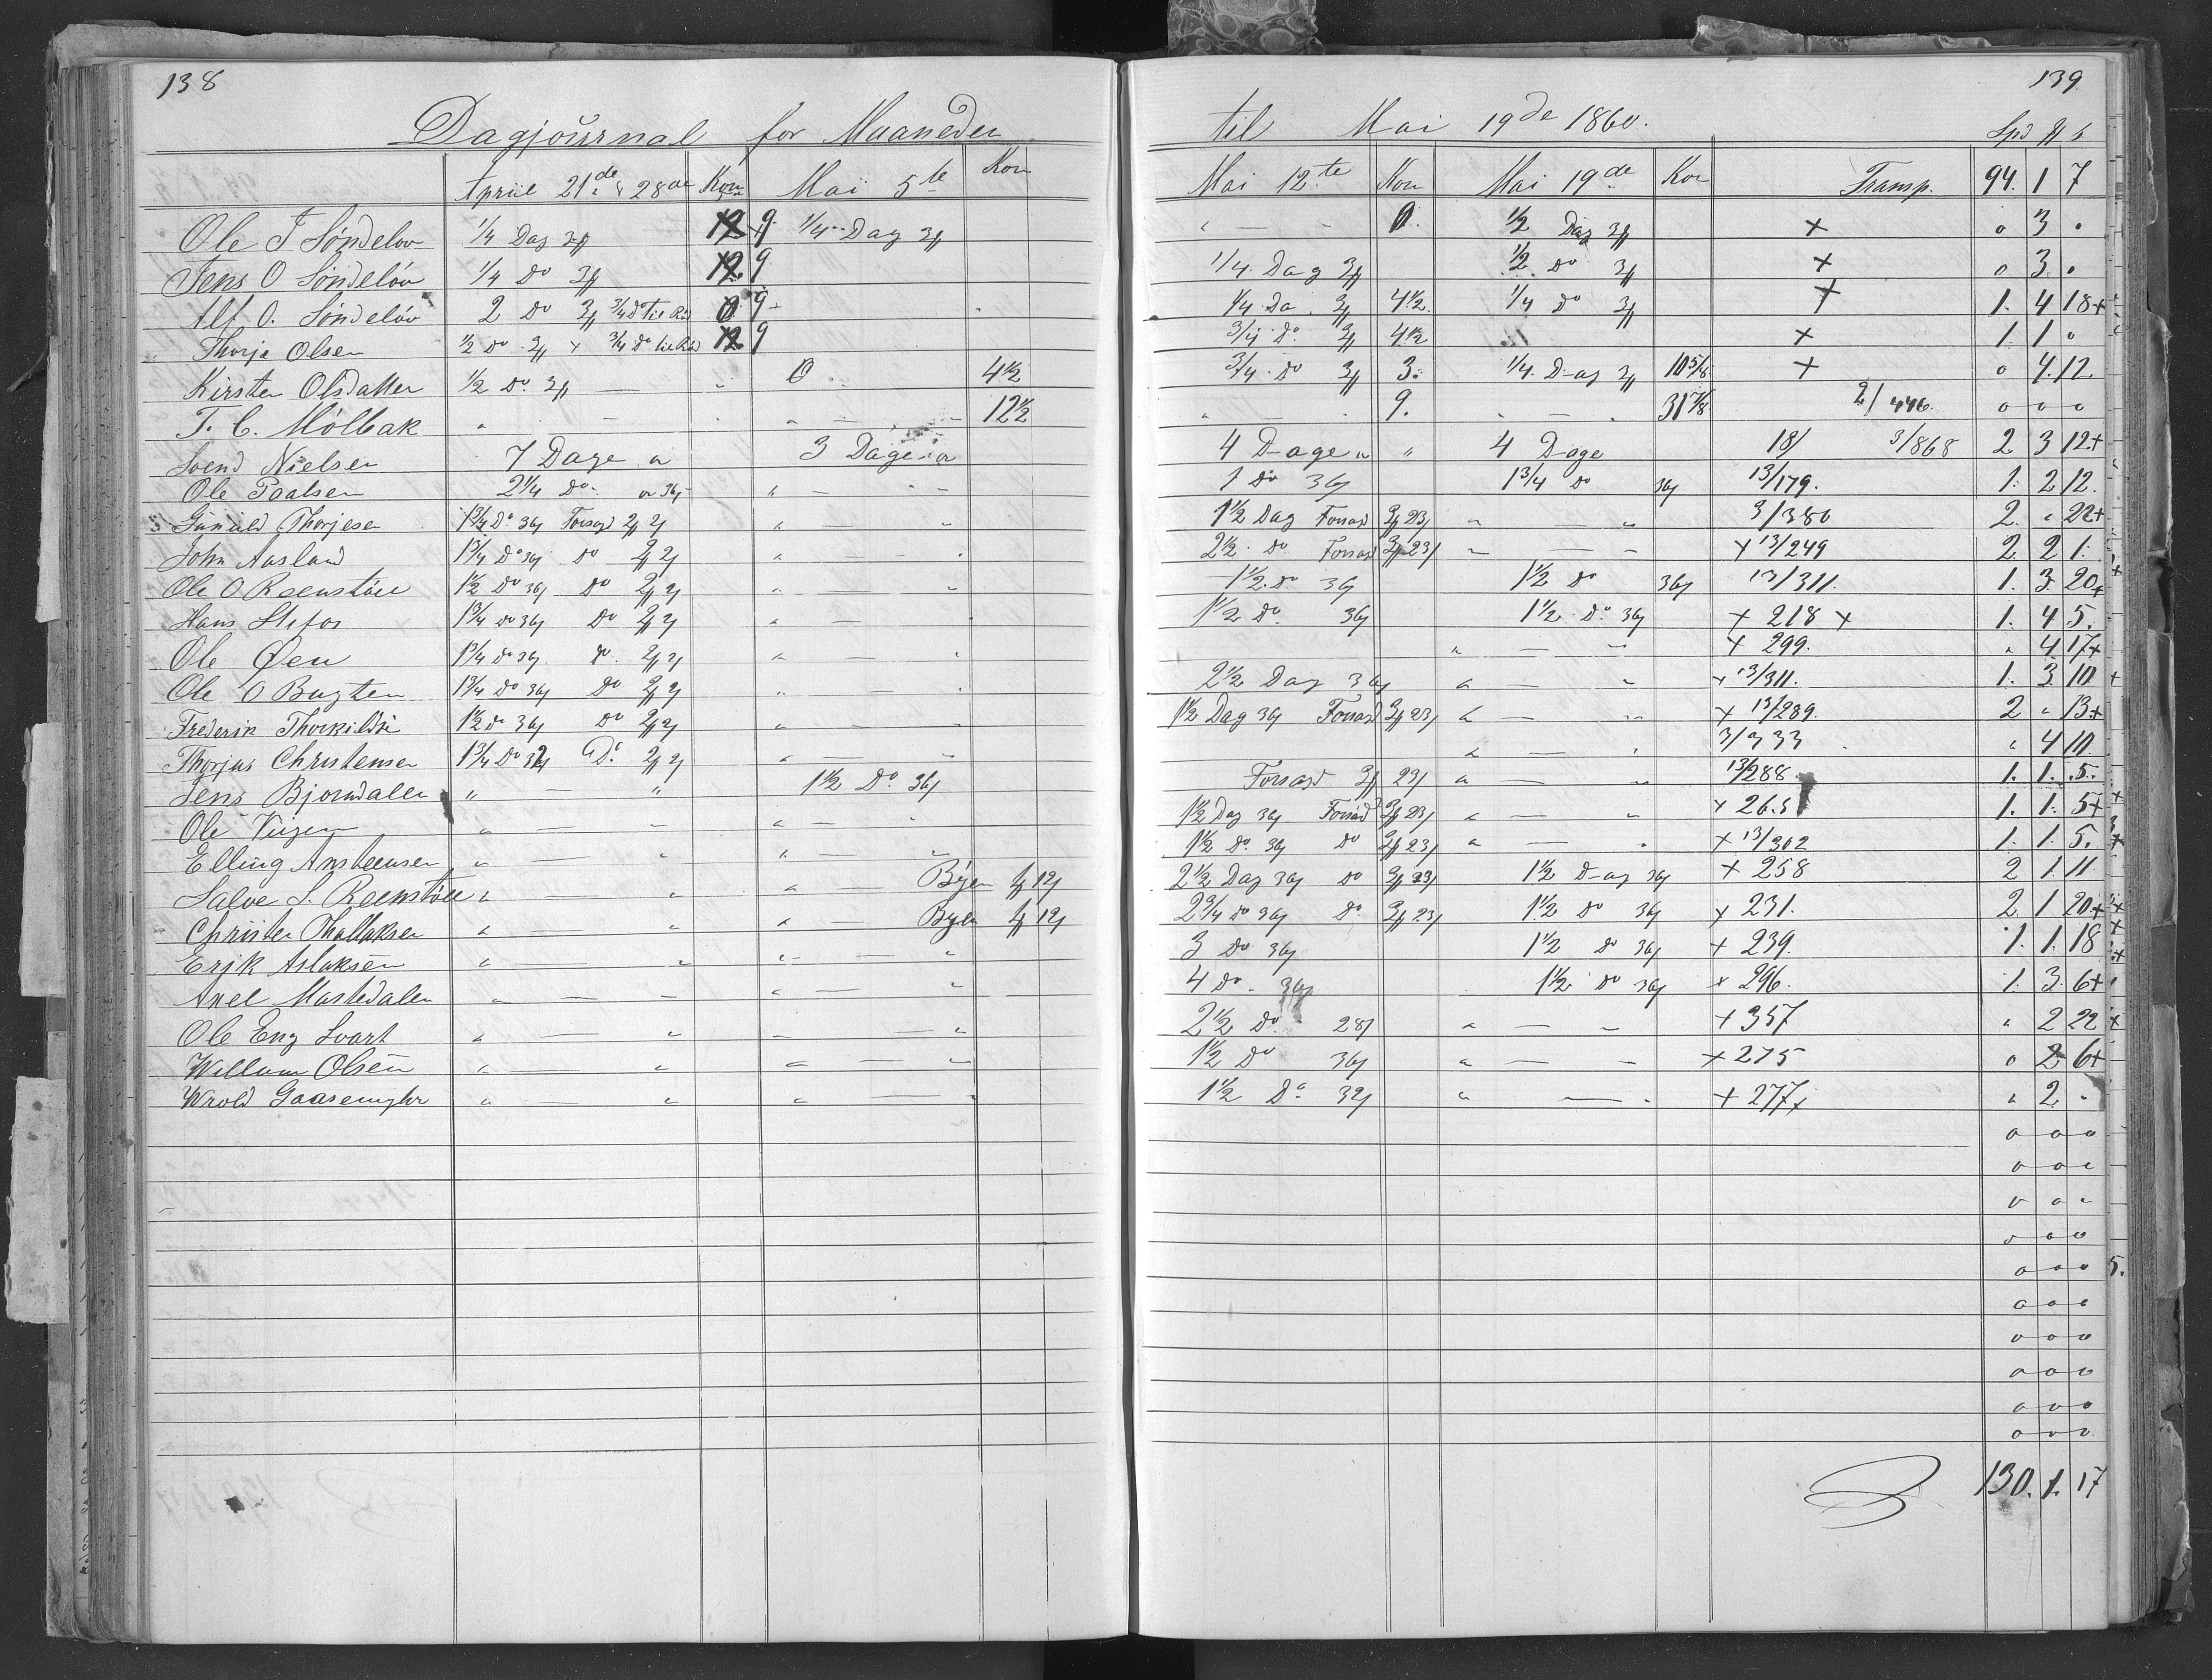 138
Dagjournal for Maaneden
April 21de & 28de Korn Mai 5te Korn
Ole T Söndelöv 1/4 Dag 9 1/4 Dag
Jens O Söndelöv 1/4 do 9
Alf O. Söndelöv 2 Do 3/4 Do til 0 9
Thorje Olsen 1/2 Do 3/4 Do til 9
Kirsten Olsdatter 1/2 Do 0 4 1/2
T. C. Mölbak " — 12 1/2
Svend Nielsen 7 Dage a 3 Dage a
Ole Paalsen 2 1/4 Do a 36 " —
Gunuld Thorjesen 1 3/4 Do 36 Forsagd " —
John Aasland 1 3/4 Do 36 do " —
Ole O Reenstöll 1 1/2 Do 36 do " —
Hans Stifos 1 3/4 do 36 Do " —
Ole Öen 1 3/4 do 36 do " —
Ole O Bugten 1 3/4 Do 36 Do " —
Frederik Thorkilds 1 1/2 do 36 Do " —
Thorjus Christensen 1 3/4 Do 32 Do " —
Jens Bjorndalen " — " 1 1/2 Do 36
Ole " — " —
Elling Ansteensen " — " —
Salve S. Reenstöll " — " — Byen 12
Christen Thollaksen " — " — Byen 12
Erik Aslaksen " — " —
Axel Mostedalen " — " —
Ole Eng Svart " — " —
Willum Olsen " — " —
Wrold Gaasemyhr " — " —
139
til Mai 19de 1860.
Spd
Mai 12te Korn Mai 19de Kor Transp. 94. 1 7
" — 0. 1/2 Dag + 0 3 0
1/4 Dag 1/2 Do + 0 3 0
1/4 Da 4 1/2 1/4 do + 1. 4 18+
3/4 Do 4 1/2 + 1. 1 0
3/4 Do 3. 1/4 Dag 10 5/8 + 0 4. 12
" — 9. " — 31 7/8 2/446. 0 0 0
4 Dage " " 4 Dage 18/ 3/868 2 3 12+
1 Do 36 1 3/4 do 36 13/179. 1. 2 12.
1 1/2 Dag Forsagd 23 " — " 3/380 2. " 22+
2 1/2 do Forsagd 23 " — " + 13/249 2. 2 1.
1 1/2 do 36 1 1/2 do 36 13/311. 1. 3. 20+
1 1/2 Do 36 1 1/2 Do 36 + 218 + 1. 4 5.
" — " + 299. " 4 17+
2 1/2 Dag 36 " — " + 13/311. 1. 3 10 +
1 1/2 Dag 36 Forsagd 23 " — " + 13/289. 2 " 13+
" — " 3/333 " 4 10.
Forsagd 23 " — " 13/288. 1. 1. 5.
1 1/2 Dag 36 Forsagd 23 " — " + 265 1. 1. 5+
1 1/2 do 36 Do 23 " — " + 13/302 1. 1. 5.
2 1/2 Dag 36 do 23 1 1/2 Dag 36 + 258 2 1. 11
2 3/4 do 36 Do 23 1 1/2 do 36 + 231. 2. 1 20+
3 Do 36 1 1/2 do 36 + 239. 1. 1. 18
4 do 36 1 1/2 do 36 + 296. 1. 3. 6+
2 1/2 Do 28 " — " + 357 " 2 22
1 1/2 Do 36 " — " + 275 0 2. 6+
1 1/2 Do 32 " — " + 277+ " 2. "
0 0 0
0 0 0
0 0 0
0 0 0
0 0 0
0 0 0
0 0 0
0 0 0
0 0 0
0 0 0
130. 1. 17